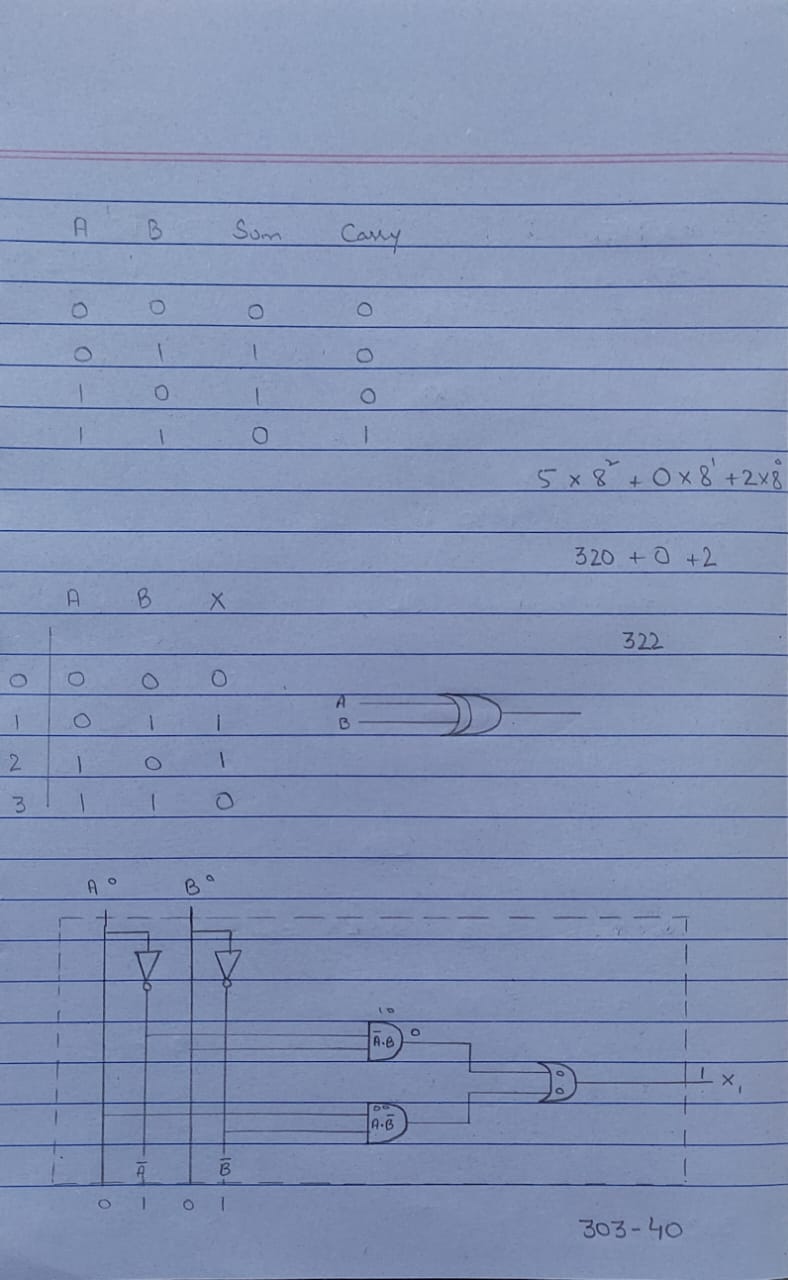 A B Sum Carry
0 0 0 0
0 1 1 0
1 0 1 0
1 1 0 1
5 × 8² + 0 × 8¹ + 2×8⁰
320 + 0 + 2
A B X
322
0 0 0 0
A
1 0 1 1
B
2 1 0 1
3 1 1 0
A 0 B 0
1 0
Ā.B 0
0
0
1 X₁
0 0
A.B̄
Ā B̄
0 1 0 1
303-40